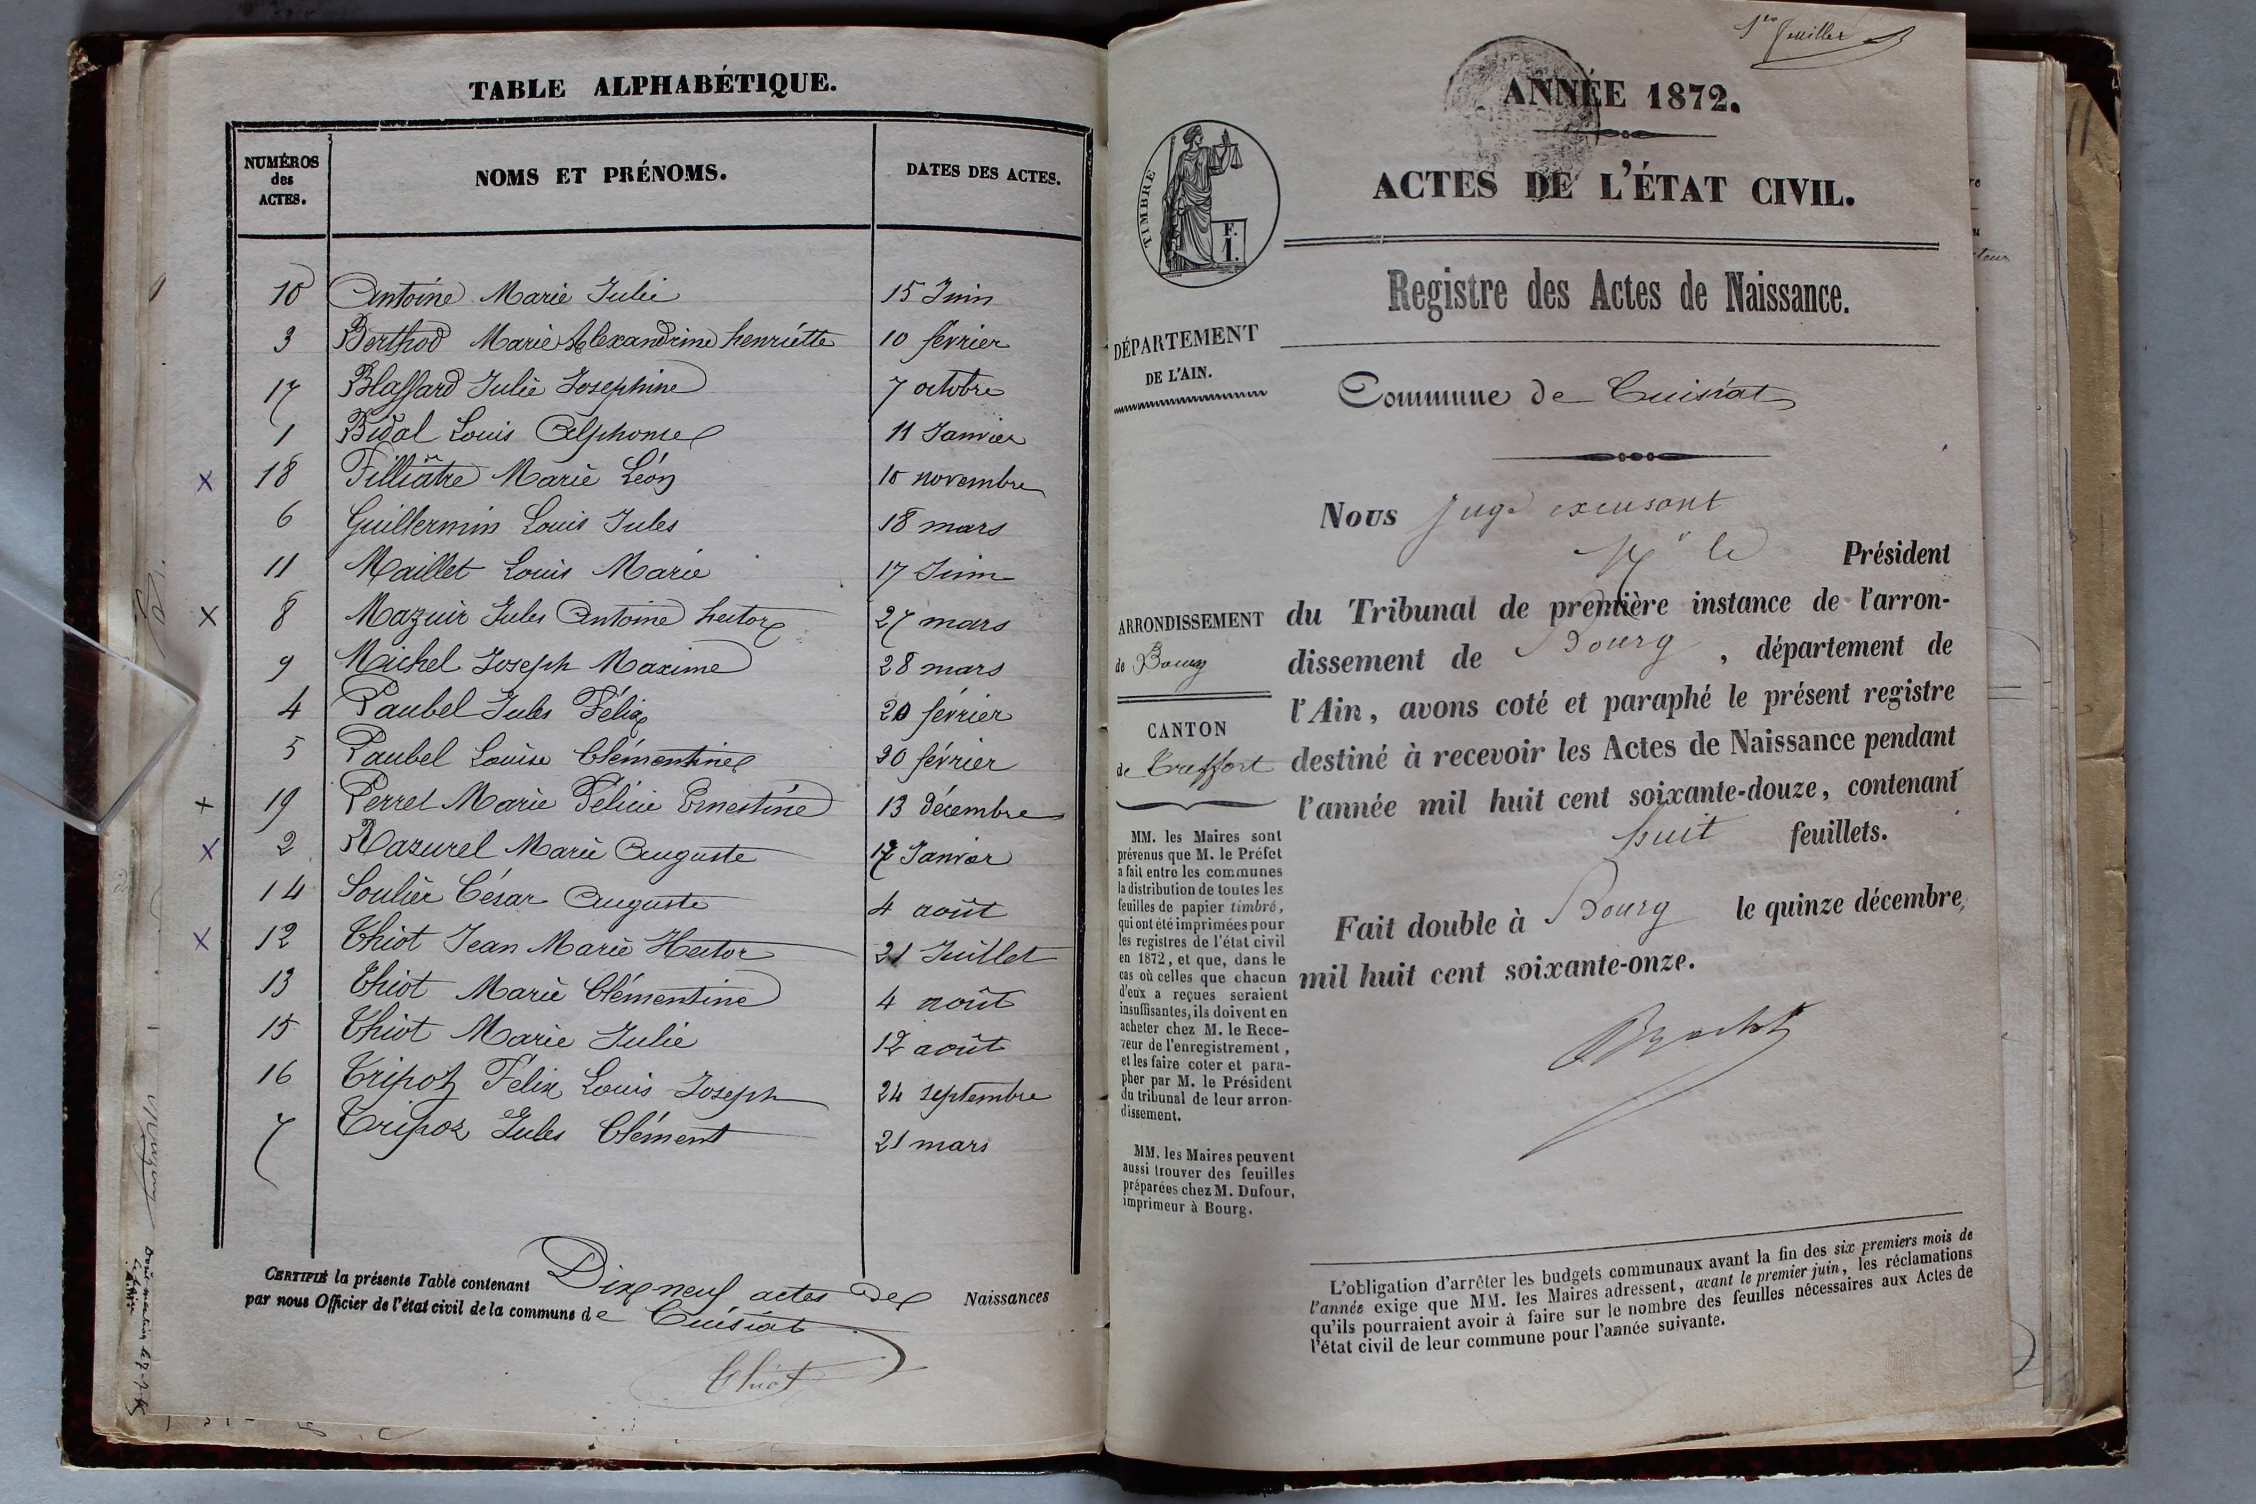 TABLE ALPHABÉTIQUE.
NUMÉROS des ACTES. NOMS ET PRÉNOMS. DATES DES ACTES.
10 Antoine Marie Julie 15 Juin
3 Berthod Marie Alexandrine henriette 10 février
17 Blaffard Julie Josephine 7 octobre
1 Bidal Louis Alphonse 11 Janvier
x 18 Filliâtre Marie Léon 10 novembre
6 Guillermin Louis Jules 18 mars
11 Maillet Louis Marie 17 Juin
x 8 Mazuir Jules Antoine hector 27 mars
9 Michel Joseph Maxime 28 mars
4 Paubel Jules Félix 20 février
5 Paubel Louise Clémentine 20 février
x 19 Perret Marie Félicie Ernestine 13 décembre
x 2 Razurel Marie Auguste 12 Janvier
14 Soulier César Auguste 4 août
x 12 Thiot Jean Marie Hector 21 Juillet
13 Thiot Marie Clémentine 4 août
15 Thiot Marie Julie 12 août
16 Tripoz Félix Louis Joseph 24 septembre
7 Tripoz Jules Clément 21 mars
CERTIFIÉ la présente Table contenant Dix neuf actes de Naissances
par nous Officier de l'état civil de la commune de Cuisiat
Thiot
1er feuillet
ANNÉE 1872.
ACTES DE L'ÉTAT CIVIL.
TIMBRE
F.
1.
Registre des Actes de Naissance.
DÉPARTEMENT
DE L'AIN.
Commune de Cuisiat
Nous Juge excusant
Mr le Président
ARRONDISSEMENT
de Bourg
CANTON
de Treffort
du Tribunal de première instance de l'arron-
dissement de Bourg, département de
l'Ain, avons coté et paraphé le présent registre
destiné à recevoir les Actes de Naissance pendant
l'année mil huit cent soixante-douze, contenant
huit feuillets.
Fait double à Bourg le quinze décembre,
mil huit cent soixante-onze.
MM. les Maires sont
prévenus que M. le Préfet
a fait entre les communes
la distribution de toutes les
feuilles de papier timbré,
qui ont été imprimées pour
les registres de l'état civil
en 1872, et que, dans le
cas où celles que chacun
d'eux a reçues seraient
insuffisantes, ils doivent en
acheter chez M. le Rece-
veur de l'enregistrement,
et les faire coter et para-
pher par M. le Président
du tribunal de leur arron-
dissement.
MM. les Maires peuvent
aussi trouver des feuilles
préparées chez M. Dufour,
imprimeur à Bourg.
L'obligation d'arrêter les budgets communaux avant la fin des six premiers mois de
l'année exige que MM. les Maires adressent, avant le premier juin, les réclamations
qu'ils pourraient avoir à faire sur le nombre des feuilles nécessaires aux Actes de
l'état civil de leur commune pour l'année suivante.